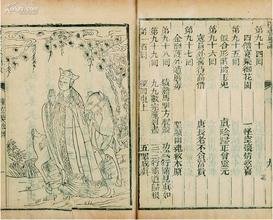 第九十四回
四僧宴樂御花園　一怪空懷情慾喜
第九十五回
假合形骸擒玉兔　真陰歸正會靈元
第九十六回
寇員外喜待高僧　唐長老不貪富貴
第九十七回
金酬外護遭魔毒　聖顯幽魂救本原
第九十八回
猿熟馬馴方脫殼　功成行滿見真如
第九十九回
九九數完魔剗盡　三三行滿道歸根
第一百回
徑回東土　五聖成真